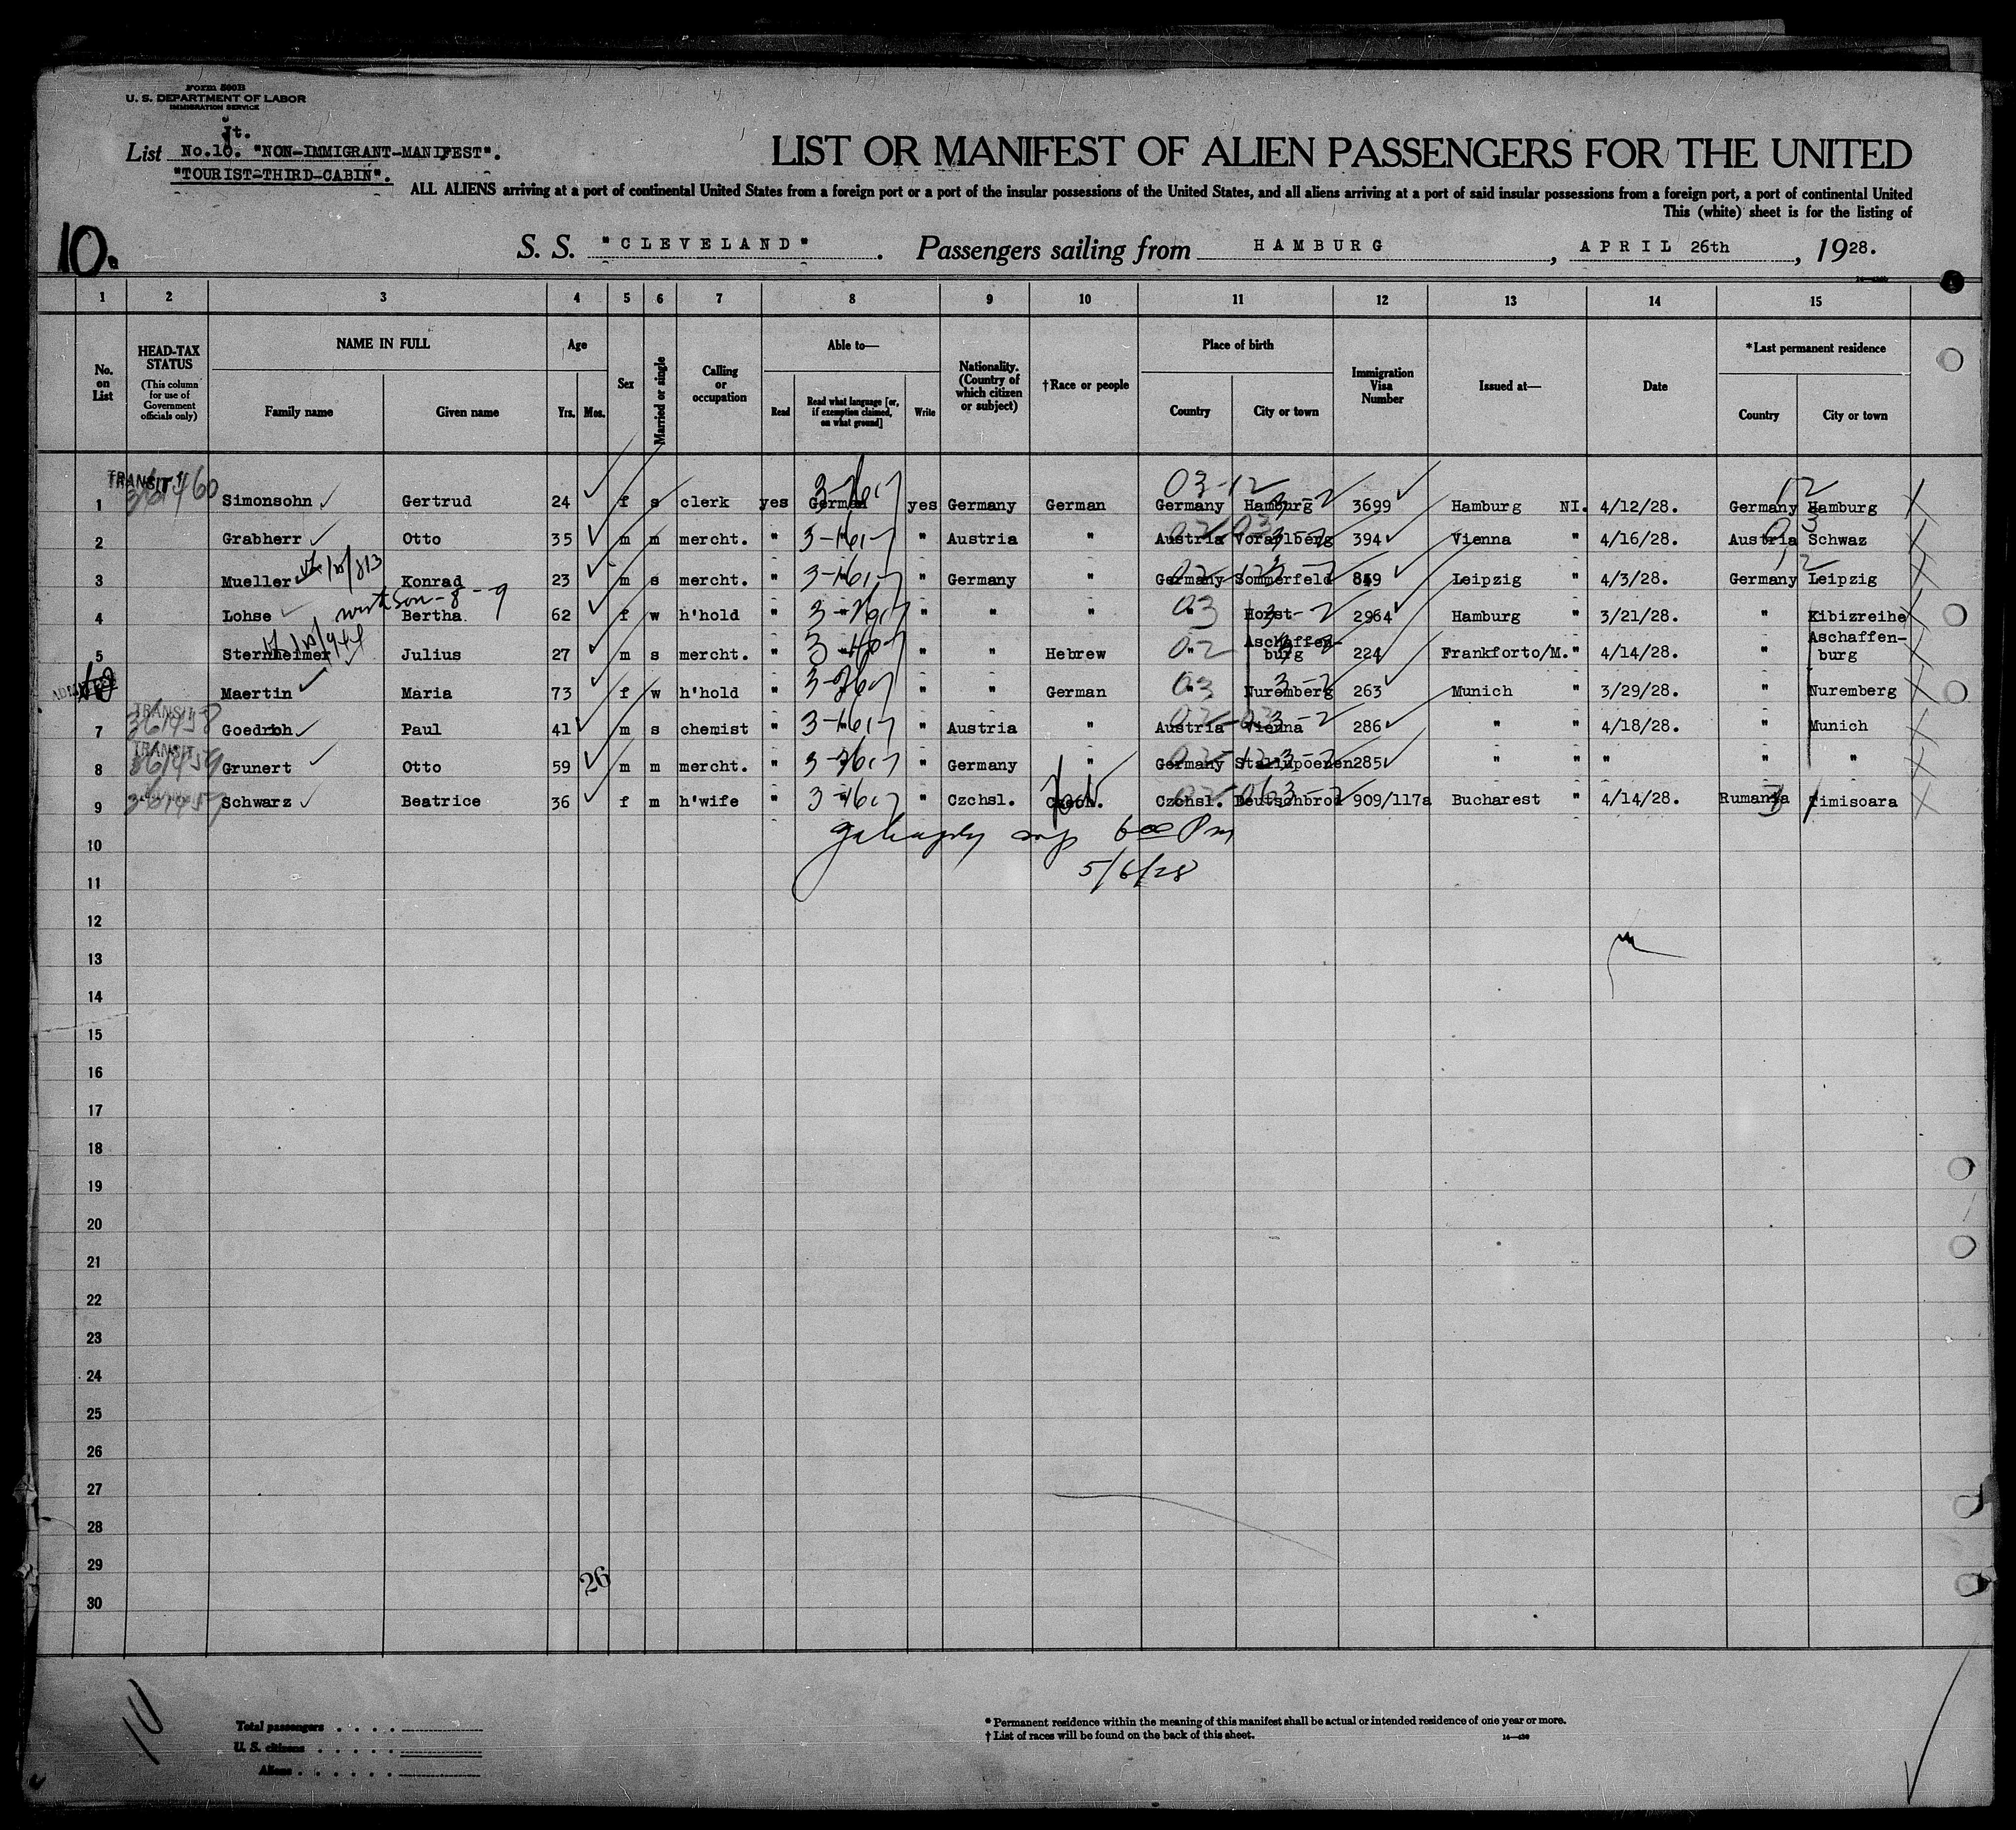 Form 500B
U. S. DEPARTMENT OF LABOR
IMMIGRATION SERVICE
Jt.
List No.10. "NON-IMMIGRANT-MANIFEST".
"TOURIST-THIRD-CABIN".
LIST OR MANIFEST OF ALIEN PASSENGERS FOR THE UNITED
ALL ALIENS arriving at a port of continental United States from a foreign port or a port of the insular possessions of the United States, and all aliens arriving at a port of said insular possessions from a foreign port, a port of continental United
This (white) sheet is for the listing of
10.
S. S. "CLEVELAND". Passengers sailing from HAMBURG, APRIL 26th, 1928.
1 2 3 4 5 6 7 8 9 10 11 12 13 14 15
No. on List
HEAD-TAX STATUS
(This column for use of Government officials only)
NAME IN FULL
Family name
Given name
Age
Yrs. Mos.
Sex
Married or single
Calling or occupation
Able to—
Read
Read what language [or, if exemption claimed, on what ground]
Write
Nationality. (Country of which citizen or subject)
†Race or people
Place of birth
Country
City or town
Immigration Visa Number
Issued at—
Date
*Last permanent residence
Country
City or town
TRANSIT 03-12 12
1 Simonsohn Gertrud 24 f s clerk yes German yes Germany German Germany Hamburg 3699 Hamburg NI. 4/12/28. Germany Hamburg
2 Grabherr Otto 35 m m mercht. " " " Austria " Austria Vorarlberg 394 Vienna " 4/16/28. Austria Schwaz
3 Mueller Konrad 23 m s mercht. " " " Germany " Germany Sommerfeld 849 Leipzig " 4/3/28. Germany Leipzig
4 Lohse Bertha 62 f w h'hold " " " " " " Horst 2964 Hamburg " 3/21/28. " Kibizreihe
5 Sternheimer Julius 27 m s mercht. " " " " Hebrew " Aschaffen-burg 224 Frankforto/M. " 4/14/28. " Aschaffen-burg
Maertin Maria 73 f w h'hold " " " " German " Nuremberg 263 Munich " 3/29/28. " Nuremberg
TRANSIT
7 Goedrich Paul 41 m s chemist " " " Austria " Austria Vienna 286 " " 4/18/28. " Munich
TRANSIT
8 Grunert Otto 59 m m mercht. " " " Germany " Germany Stallupoenen 285 " " " " "
9 Schwarz Beatrice 36 f m h'wife " " " Czchsl. Czech. Czchsl. Deutschbrod 909/117a Bucharest " 4/14/28. Rumania Timisoara
6 00 Pm
10
5/6/28
11
12
13
14
15
16
17
18
19
20
21
22
23
24
25
26
27
28
29
26
30
10
Total passengers
U. S. citizens
Aliens
* Permanent residence within the meaning of this manifest shall be actual or intended residence of one year or more.
† List of races will be found on the back of this sheet.